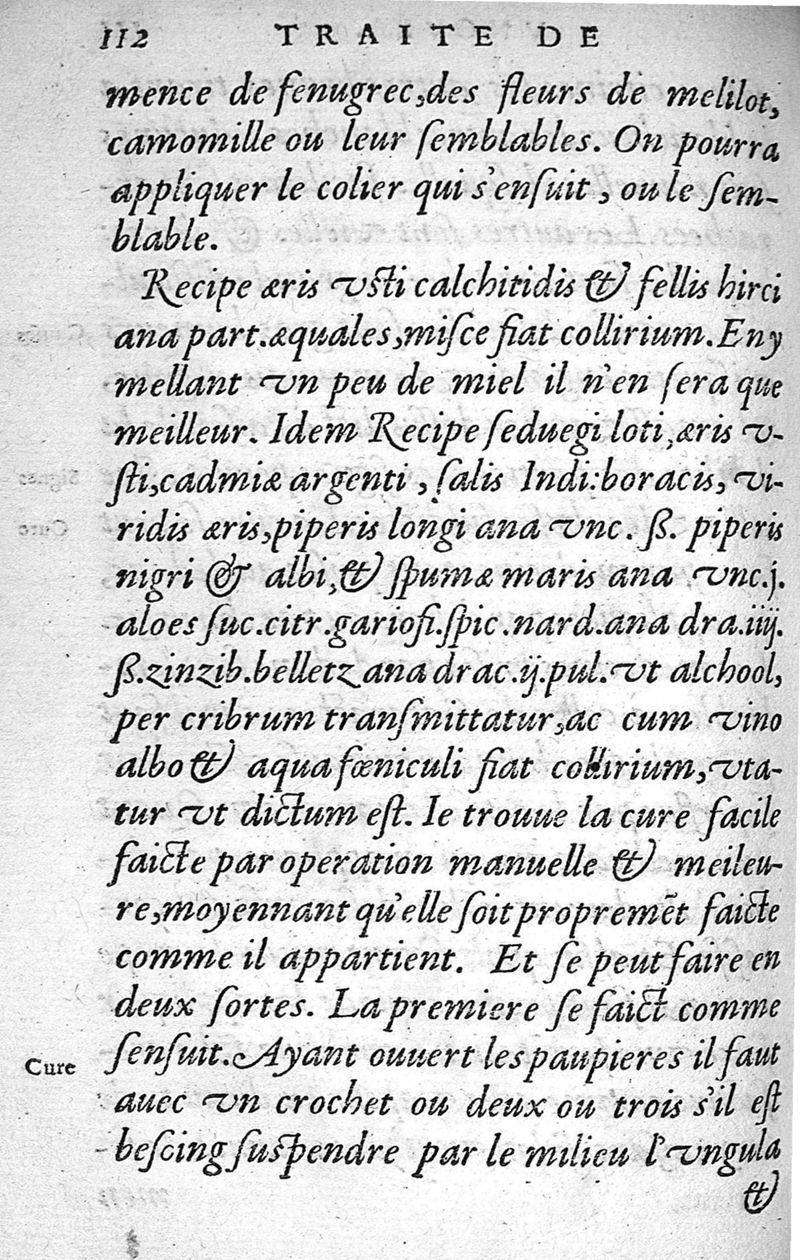 112 TRAITE DE
mence de fenugrec,des fleurs de melilot,
camomille ou leur ſemblables. On pourra
appliquer le colier qui s'enſuit, ou le ſem-
blable.
Recipe æris vſti calchitidis & fellis hirci
ana part.æquales,miſce fiat collirium.En y
mellant vn peu de miel il n'en ſera que
meilleur. Idem Recipe ſeduegi loti,æris v-
ſti,cadmiæ argenti, ſalis Indi:boracis, vi-
ridis æris,piperis longi ana vnc. ß. piperis
nigri & albi,& ſpumæ maris ana vnc.j.
aloes ſuc.citr.gariofi.ſpic.nard.ana dra.iiij.
ß.zinzib.belletz ana drac.ij.pul.vt alchool,
per cribrum tranſmittatur,ac cum vino
albo & aqua fœniculi fiat collirium,vta-
tur vt dictum eſt. Ie trouue la cure facile
faicte par operation manuelle & meileu-
re,moyennant qu'elle ſoit propremẽt faicte
comme il appartient. Et ſe peut faire en
deux ſortes. La premiere ſe faict comme
ſenſuit.Ayant ouuert les paupieres il faut
Cure
auec vn crochet ou deux ou trois s'il eſt
beſcing ſuſpendre par le milieu l'vngula
&